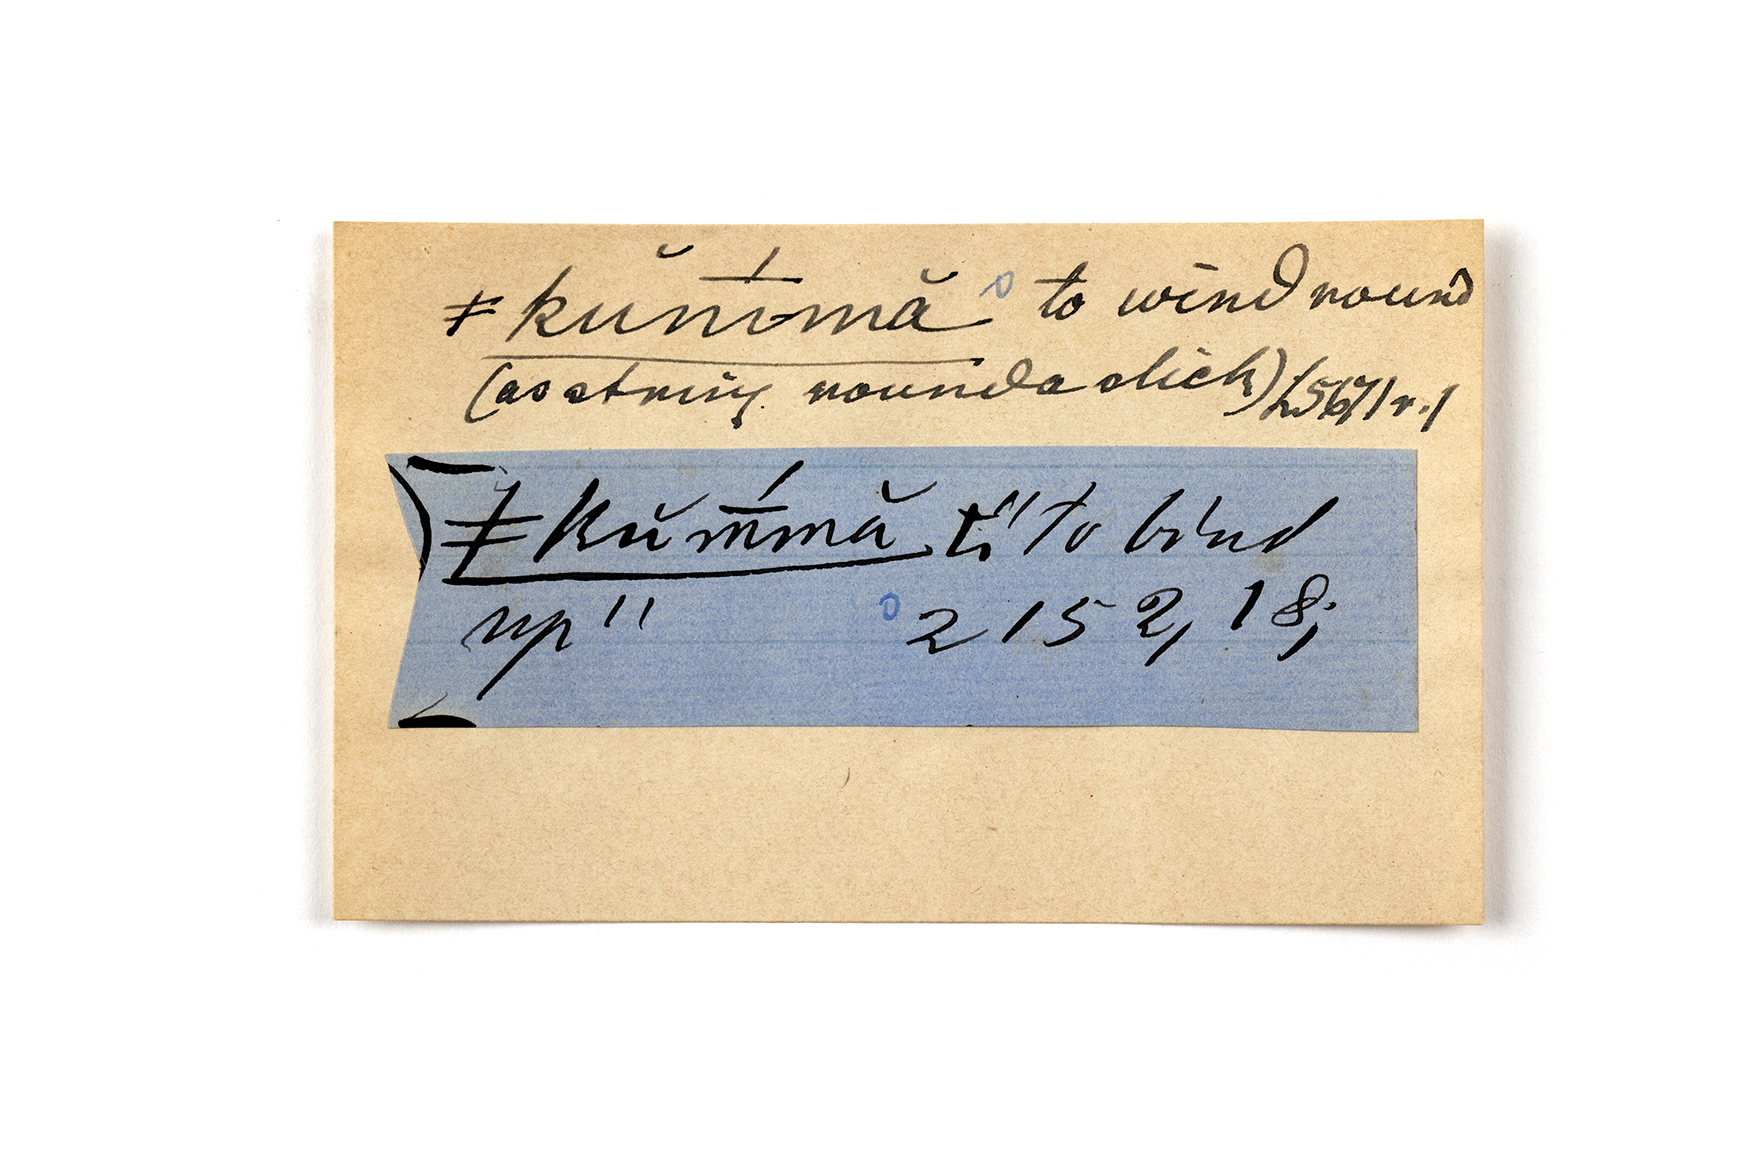 ǂkŭm̄́mă to wind round
(as string round a stick) L5671r.)
ǂkŭm̄́mă tĭ "to bind
up" 2152, 18;